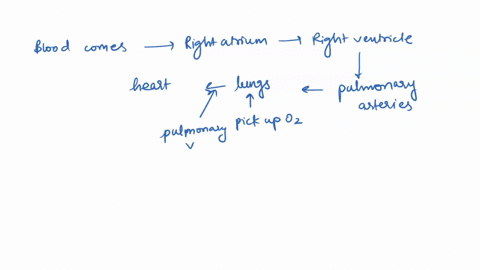 Blood comes → Right atrium → Right ventricle
heart ← lungs ← pulmonary
arteries
pulmonary pick up O2
v